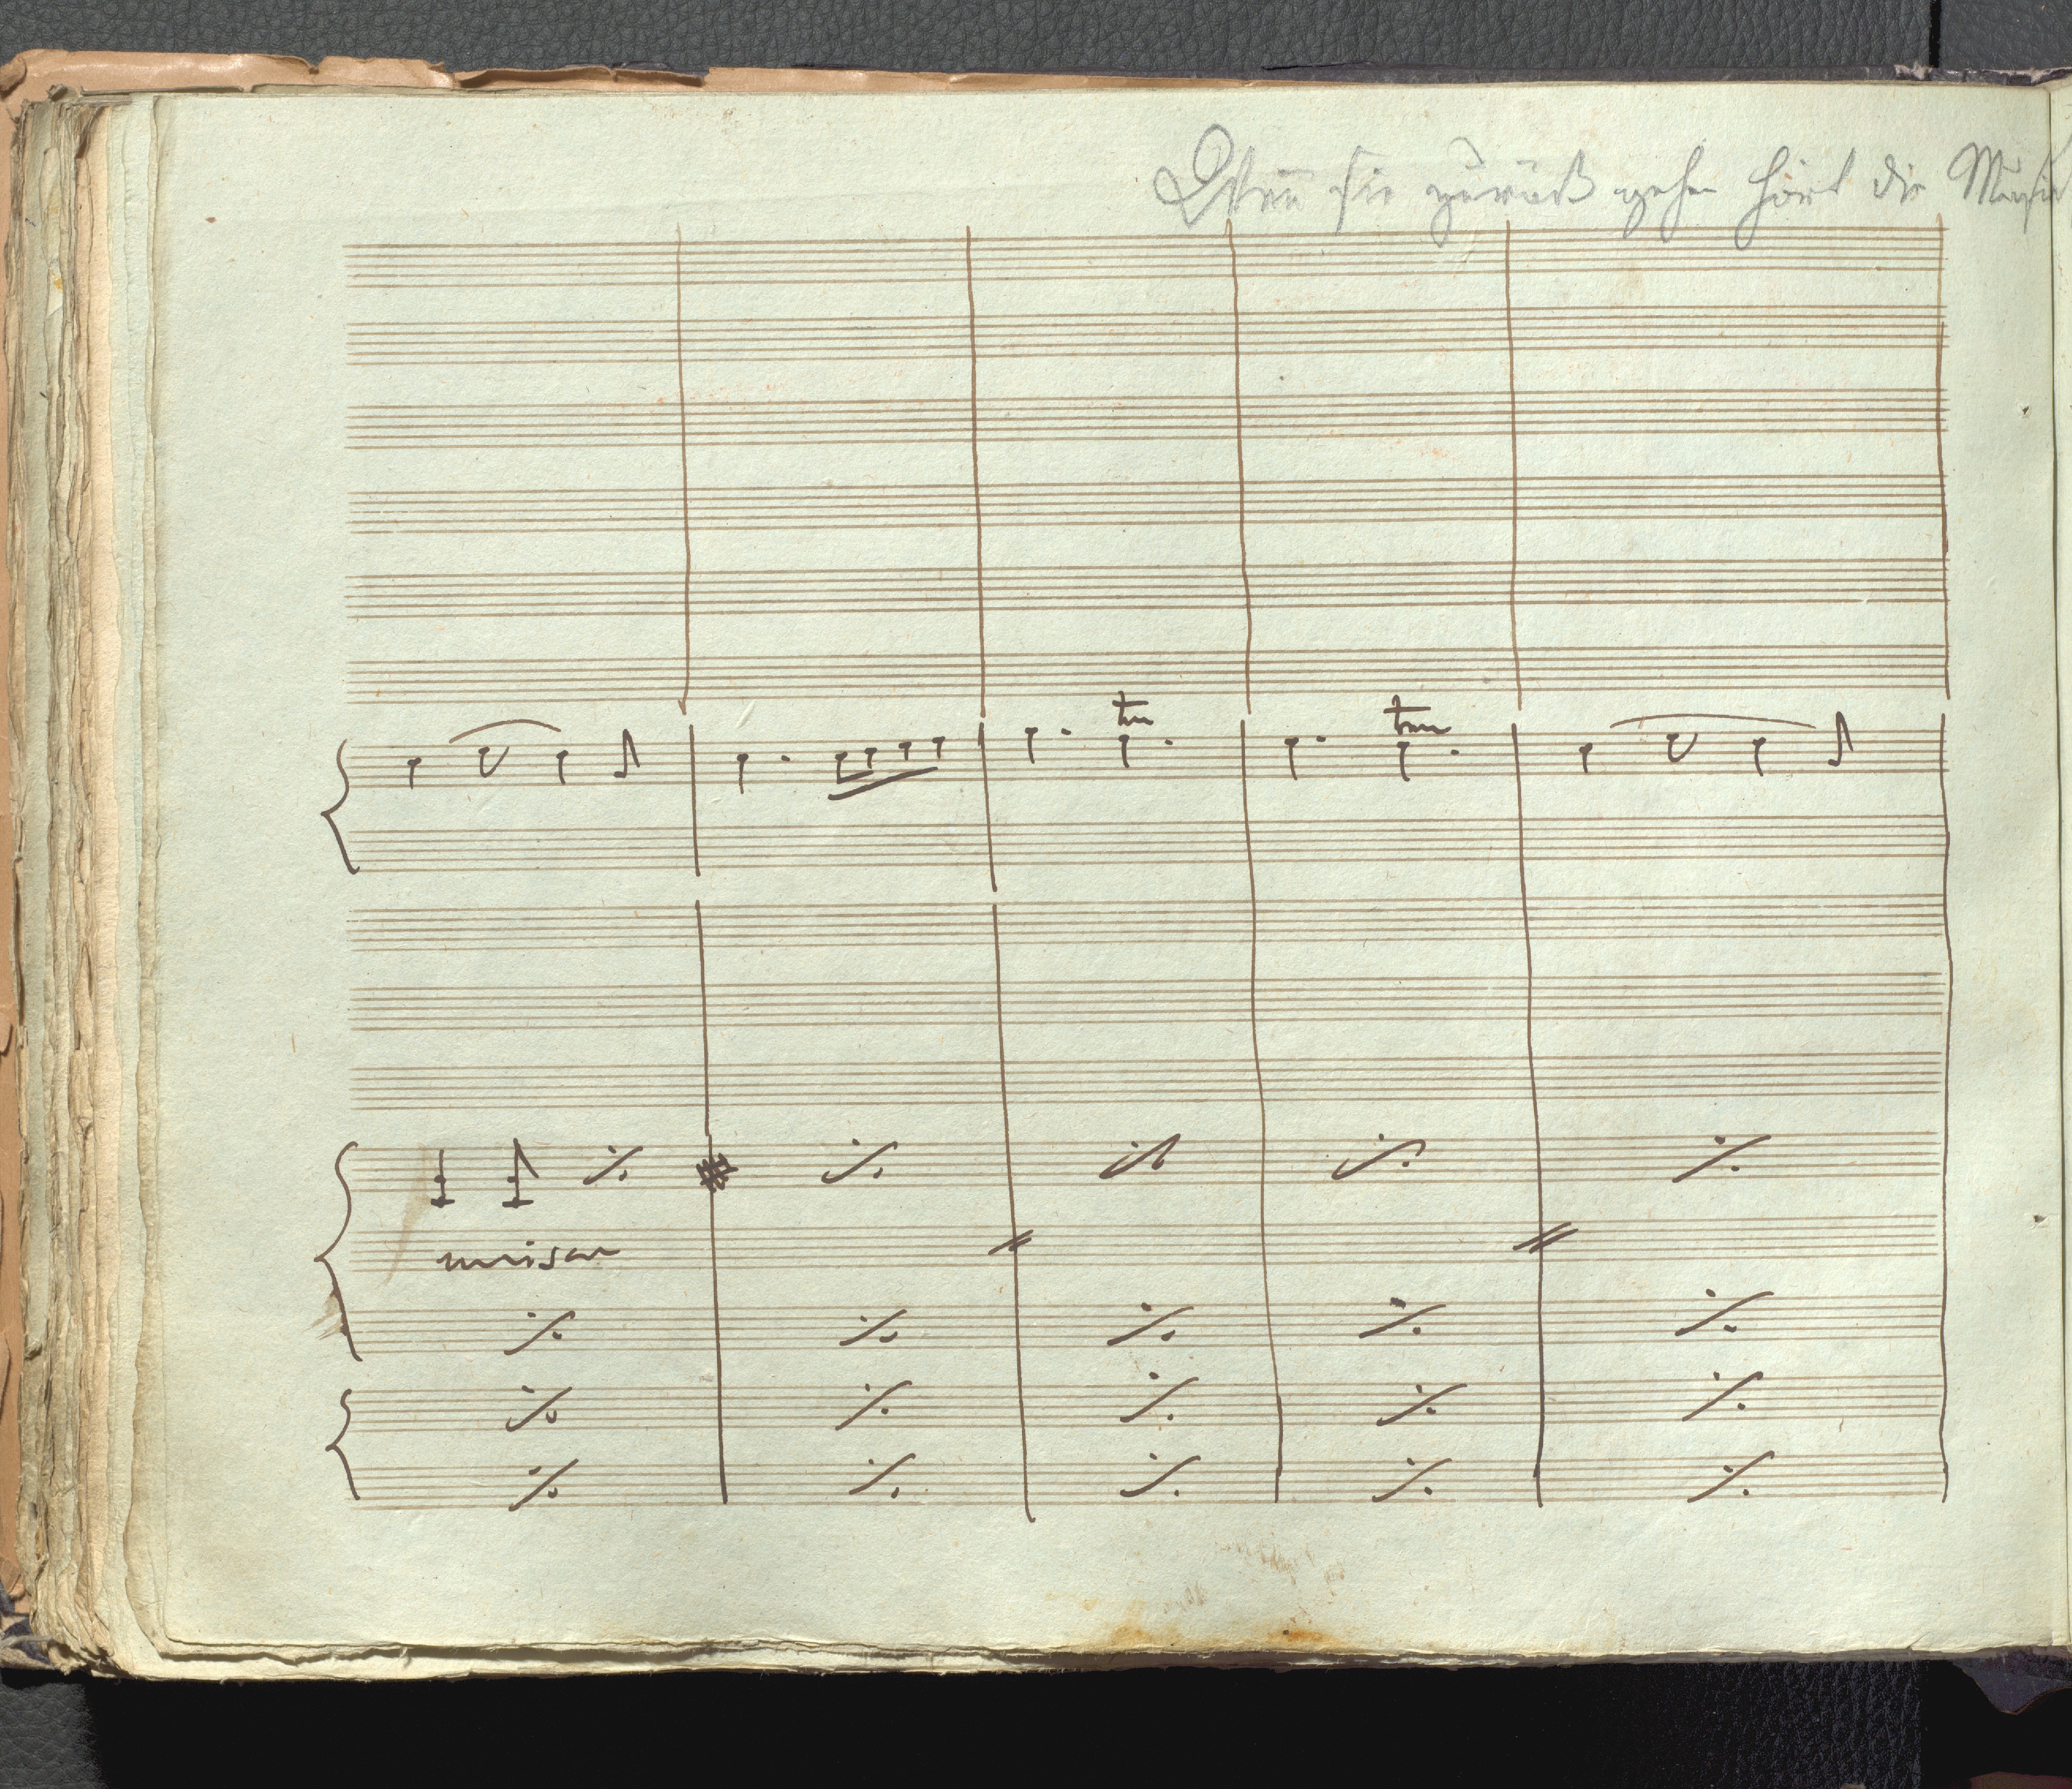 Wenn sie zurück gehen hört die Musik
tr tr
unison